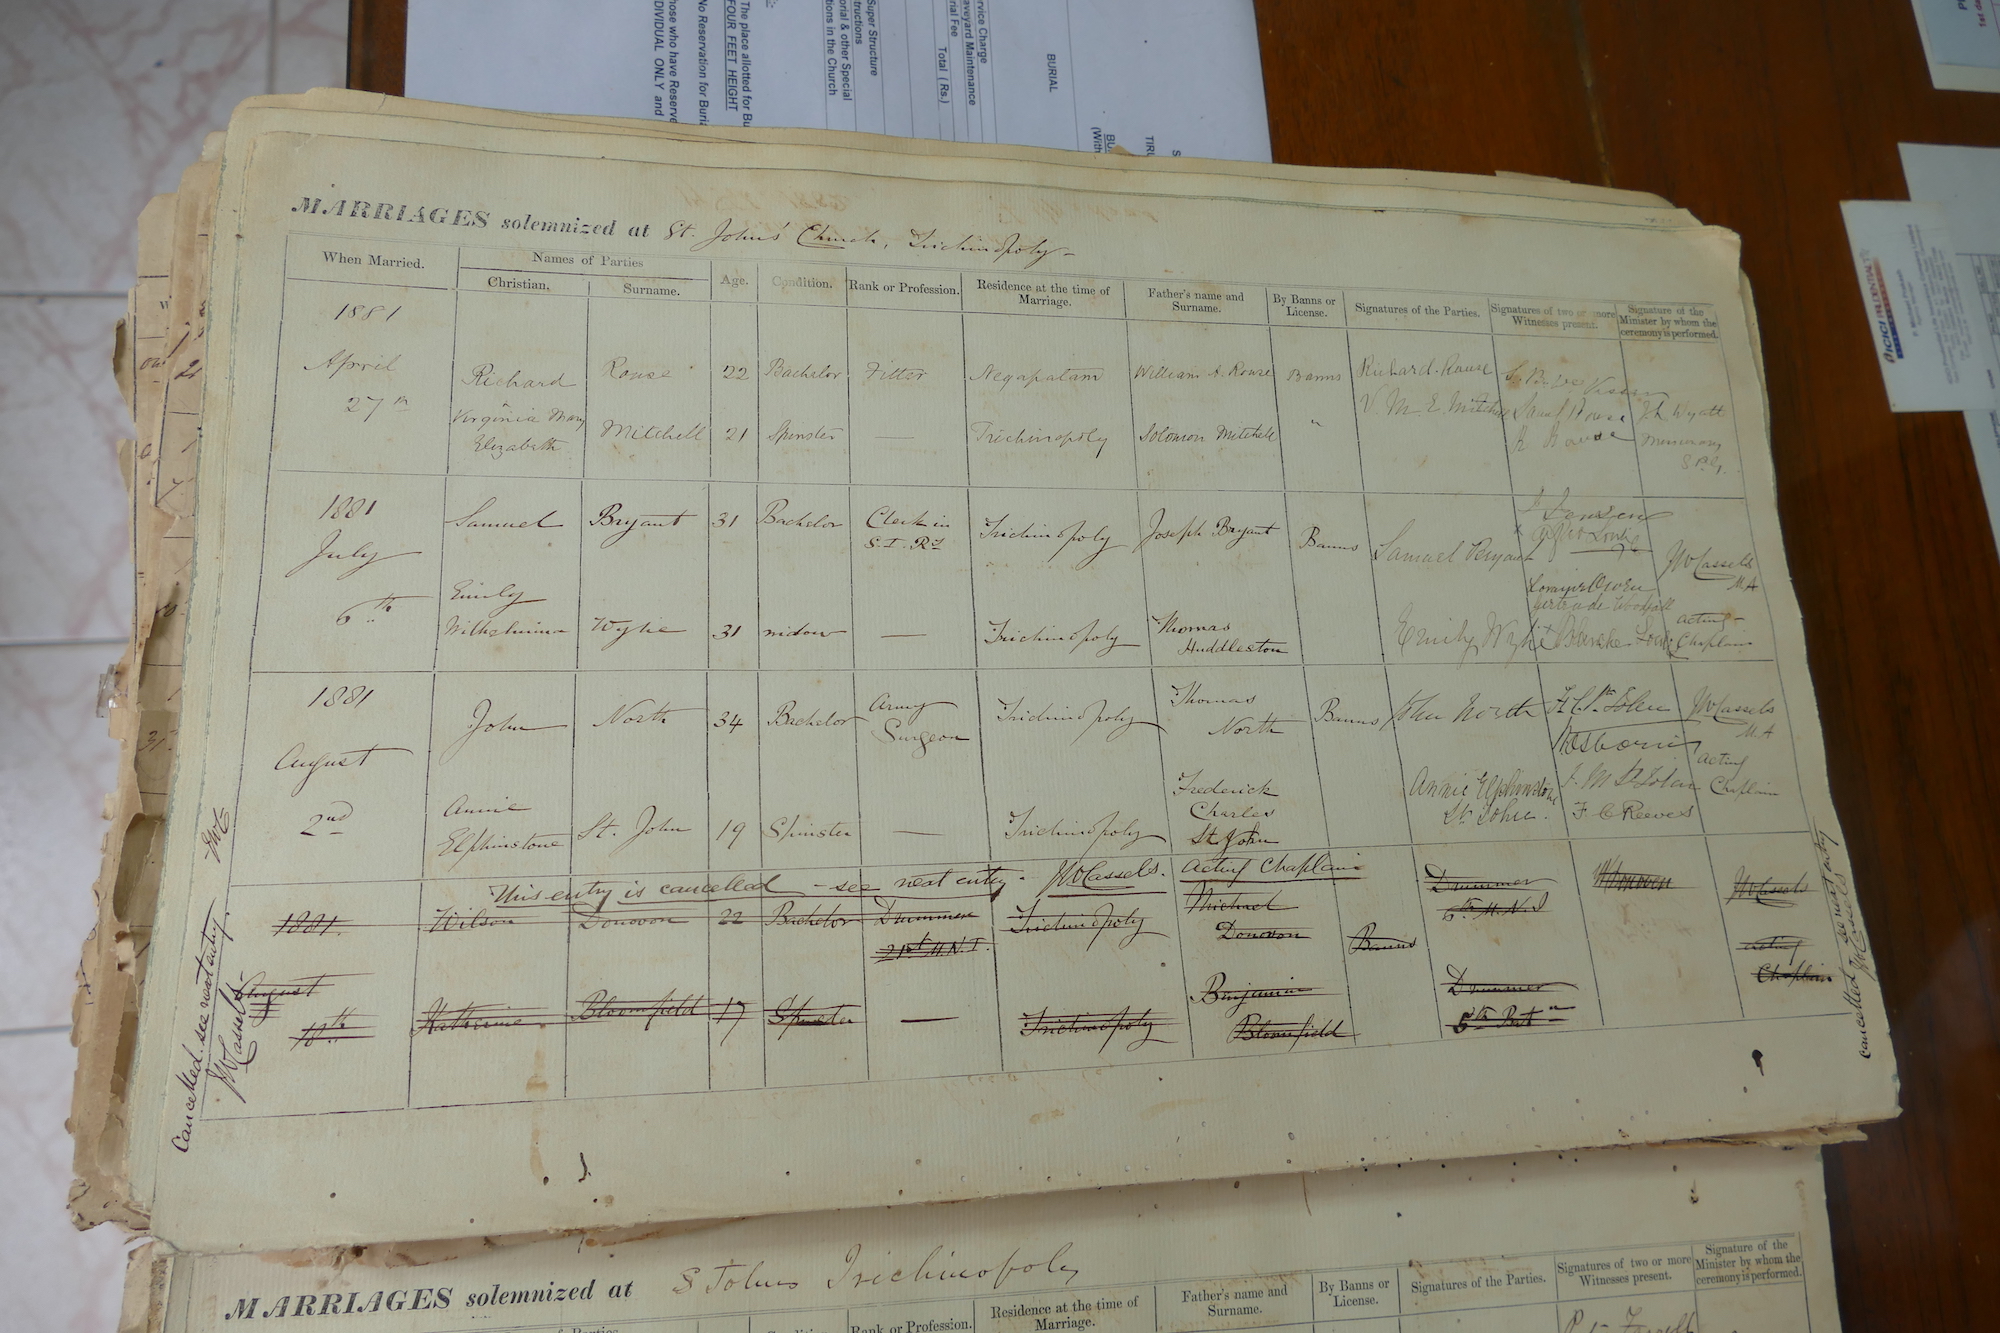 The place allotted for Bu
FOUR FEET HEIGHT
No Reservation for Buria
hose who have Reserve
DIVIDUAL ONLY and
Super Structure
tructions
orial & other Special
tions in the Church
rvice Charge
aveyard Maintenance
rial Fee
Total (Rs.)
BURIAL
ICICI PRUDENTIAL
MARRIAGES solemnized at St. Johns' Church, Trichinopoly
When Married.
Names of Parties
Christian.
Surname.
Age.
Condition.
Rank or Profession.
Residence at the time of
Marriage.
Father's name and
Surname.
By Banns or
License.
Signatures of the Parties.
Signatures of two or more
Witnesses present.
Signature of the
Minister by whom the
ceremony is performed.
1881
April
27th
Richard Rouse 22 Bachelor Fitter Negapatam William S. Rouse Banns Richard Rouse
Virginia Mary
Elizabeth Mitchell 21 Spinster — Trichinopoly Solomon Mitchell " V. M. E. Mitchell
Wyatt
1881
July
6th
Samuel Bryant 31 Bachelor Clerk in
S. I. Ry Trichinopoly Joseph Bryant Banns Samuel Bryant
Emily
Wilhelmina Wylie 31 widow — Trichinopoly Thomas
Huddleston Emily Wylie
Gertrude Woodfall
JW Cassels
MA
Acting
Chaplain
1881
August
2nd
John North 34 Bachelor Army
Surgeon Trichinopoly Thomas
North Banns John North
Annie
Elphinstone St. John 19 Spinster — Trichinopoly Frederick
Charles
St. John Annie Elphinstone
St John.
F. C. St John
Osborne
J. M. St John
F. C. Reeves
JW Cassels
MA
Acting
Chaplain
JWC
This entry is cancelled - see next entry. JW Cassels. Acting Chaplain
1881.
August
18th
Wilson Donovon 22 Bachelor Drummer
21st M.N.I. Trichinopoly Michael
Donovon Banns Drummer
6th M.N.I
Katherine Bloomfield 17 Spinster — Trichinopoly Benjamin
Bloomfield Drummer
5th Batn
W Donovon
JW Cassels
Acting
Chaplain
Cancelled. see next entry
JW Cassels
Cancelled see next entry
JW Cassels
MARRIAGES solemnized at St Johns Trichinopoly
Rank or Profession.
Residence at the time of
Marriage.
Father's name and
Surname.
By Banns or
License.
Signatures of the Parties.
Signatures of two or more
Witnesses present.
Signature of the
Minister by whom the
ceremony is performed.